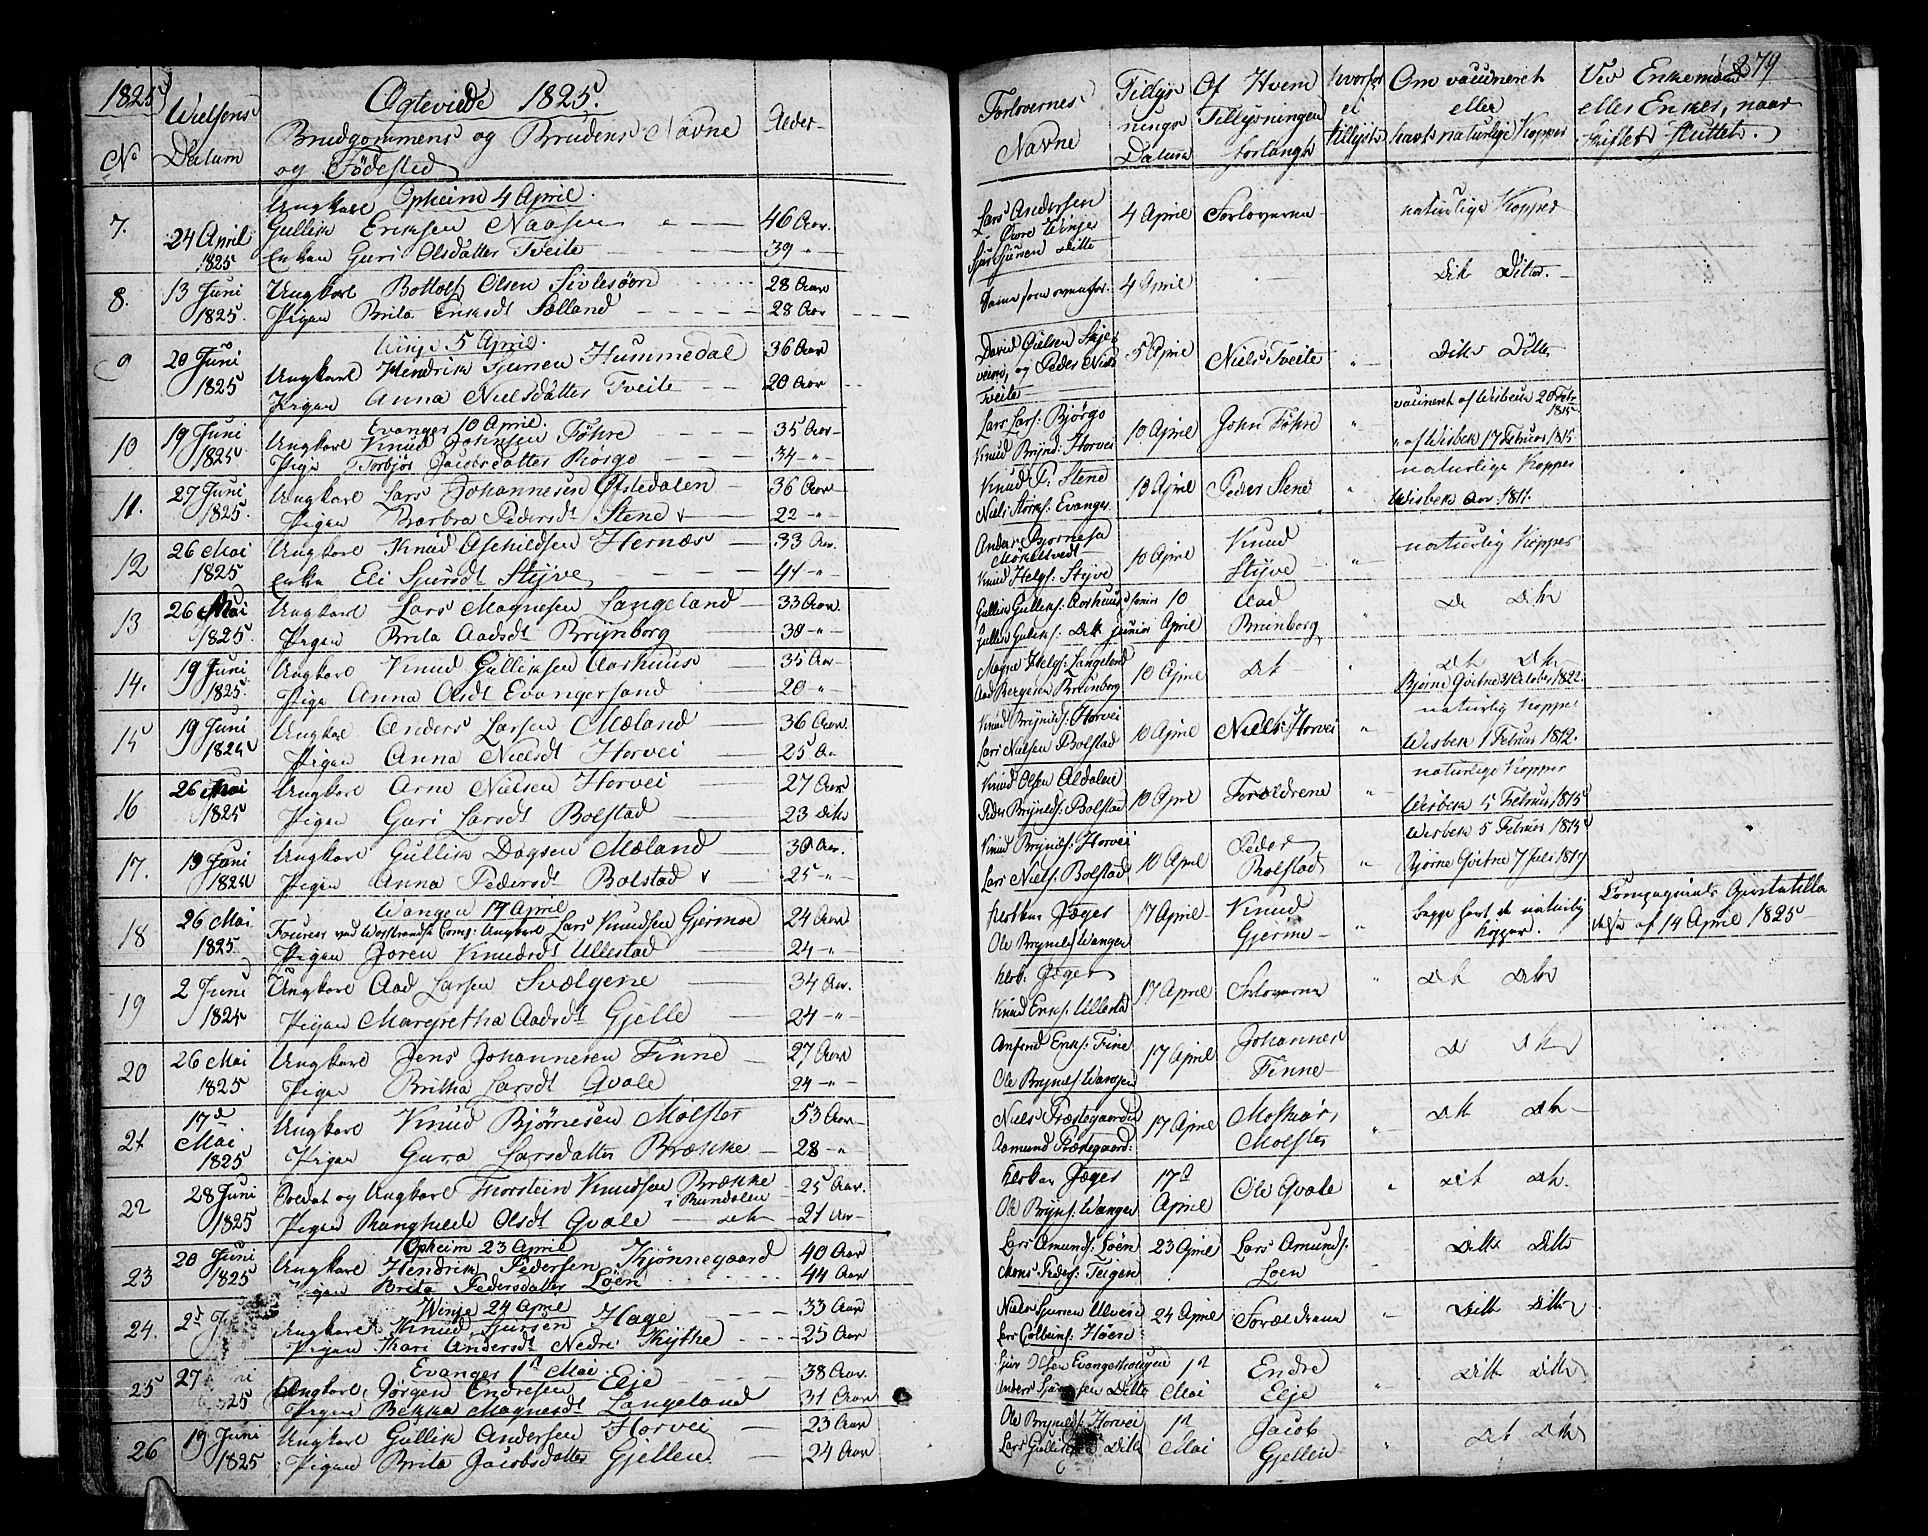 1825
No
Vielsens
Datum
Ægteviede 1825.
Brudgommens og Brudens Navne
og Fødested
Alder
Forlovernes
Navne
Tillys-
nings
Datum
Af Hvem
Tillysningen
forlangt
hvorfor
ei
tillyst
Om vaccineret
eller
havt naturlige Kopper
Ved Enkemænd
eller Enker, naar
Skiftet sluttet.
279
Opheim 4 April.
7. 24 April 1825
Ungkarl Gullik Eriksen Naasen 46 Aar.
Enken Guri Olsdatter Tveite 39 "
Lars Andersen
Øvre Winje
Sjur Sjursen Ditto
4 April Forloverne naturlige Kopper
8. 13 Juni 1825.
Ungkarl Bottolf Olsen Sivlesøen 28 Aar
Pigen Brita Eriksdt Sælland 28 Aar
Samme som ovenfor. 4 April
Dit Ditto.
Winje 5 April.
9 20 Juni 1825
Ungkarl Hendrik Sjursen Hummedal 36 Aar
Pigen Anna Nielsdatter Tveite 20 Aar
David Gielsen Skje-
veim, og Peder Niels
Tveite
5 April Niels Tveite " Ditto Ditto
Evanger 10 April.
10 19 Juni 1825
Ungkarl Knud Johnsen Føhre 35 Aar
Pige Torbjør Jacobsdatter Rørgo 34 "
Lars Lars: Bjørgo
Knud Brynd: Horvei
10 April John Føhre "
vaccineret af Wisbeck 20 Febr 1815
" af Wisbek 17 Februar 1815
11. 27 Juni 1825.
Ungkarl Lars Johannesen Øfstedalen 36 Aar
Pigen Barbra Pedersdt Stene 22 "
Knud P. Stene
Niels Storks: Evanger
10 April Peder Stene "
naturlige Kopper
Wisbek Aar. 1811.
12 26 Mai 1825
Ungkarl Knud Aschildsen Hernæs 33 Aar.
Enke Eli Sjursdt Styve 41 "
Anders Bjornesen
Møkletvedt
Knud Helgs: Styve
10 April Knud
Styve " naturlig Kopper
13 26 Mai 1825.
Ungkarl Lars Magnesen Langeland 33 Aar.
Pigen Brita Aadsdt Brynborg 30 "
Gullik Gulliks: Aarhuus senior
Gullik Guliks: Ditto junior
10 April Aad
Brunborg " Do Dito
14. 19 Juni 1825.
Ungkarl Knud Gulliksen Aarhuus 35 Aar
Pige Anna Olsdt Evangersand 20 "
Magne Helgs: Langeland
Aad Bergesen Brunborg
10 April Dit " Dit Dito
Bjørne Qvitne 21 October 1822.
15 19 Juni 1825
Ungkarl Anders Larsen Mæland 36 Aar.
Pigen Anna Nielsdt Horvei 25 Aar
Knud Brynilds: Horvei
Lars Nielsen Bolstad
10 April Niels Horvei "
naturlig Kopper
Wisbek 1 Februar 1812.
16 26 Mai 1825
Ungkarl Arne Nielsen Horvei 27 Aar
Pigen Guri Larsdt Bolstad 23 Ditto
Knud Olsen Aldalen
Peder Brynilds: Bolstad
10 April Forældrene "
naturlige Kopper
Wisbek 5 Februar 1815
17. 19 Juni 1825
Ungkarl Gullik Dagsen Mæland 30 Aar.
Pigen Anna Pedersdt Bolstad 25 "
Knud Brynilds: Horvei
Lars Niels: Bolstad
10 April Peder
Bolstad "
Wisbek 5 Februar 1815
Bjørne Qvitne 7 Juli 1819
Wangen 17 April
18 26 Mai 1825.
Fourer ved Wosstrandske Comp. Ungkarl Lars Knudsen Gjermoe 24 Aar
Pigen Joren Knudsdt Ullestad 24 "
Kirkes: Jæger
Ole Brynilds: Wangen
17 April Knud
Gjerme "
begge havt de naturlig
Kopper.
Compagniets Ægteattest
af 14 April 1825
19 2 Juni 1825
Ungkarl Aad Larsen Svælgene 34 Aar.
Pigen Margretha Aadsdt Gjelle 24 "
Kirk: Jæger
Knud Eriks: Ullestad
17 April Forloverne " Dit Dito
20 26 Mai 1825
Ungkarl Jens Johannesen Finne 27 Aar
Pigen Britha Larsdt Qvale 24 "
Anfend Eriks: Fine
Ole Brynils: Wangen
17 April Johannes
Finne Do Dito
21 17d Mai 1825
Ungkarl Knud Bjørnesen Mølster 53 Aar
Pigen Gura Larsdatter Brække 28 "
Niels Præstegaarden
Aamund Præstegaard:
17 April
Molster " Dit Dito
22 28 Juni 1825
Soldat og Ungkarl Thorstein Knudsen Brække i Rundalen 25 Aar.
Pigen Ranghilde Olsdt Qvale Dito 21 Aar
Kirkes: Jæger
Ole Brynils: Wangen
17d April Ole Qvale " Dit Dito.
Opheim 23 April
23 20 Juni 1825
Ungkarl Hendrik Pedersen Kjønnegaard 40 Aar
Pigen Brita Pedersdatter Løen 44 Aar
Lars Amunds: Løen
Mons Peders: Teigen
23 April Lars Amunds:
Løen Ditto Ditto
Winje 24 April
24. 2d
Ungkarl Knud Sjursen Hage 33 Aar
Pigen Kari Andersdt Nedre Kythe 25 Aar
Niels Sjursen Ulvesed
Lars Colbeins: Høen
24 April Forældrene " Ditto Ditto
Evanger 1d Mai
25 27 Juni 1825
Ungkarl Jørgen Endresen Elje 38 Aar.
Pigen Bekka Magnesdt Langeland 31 Aar
Sjur Olsen Evangerholmen
Anders Sjursen Ditto
1d Mai Endre
Elje " Ditto Ditto
26 19 Juni 1825
Ungkarl Gullik Andersen Horvei 23 Aar
Pigen Brita Jacobsdatter Gjellen. 24 Aar
Ole Brynilds: Horvei
Lars Gulliks: Ditto
1d Mai Jacob
Gjellen " Dit Dito